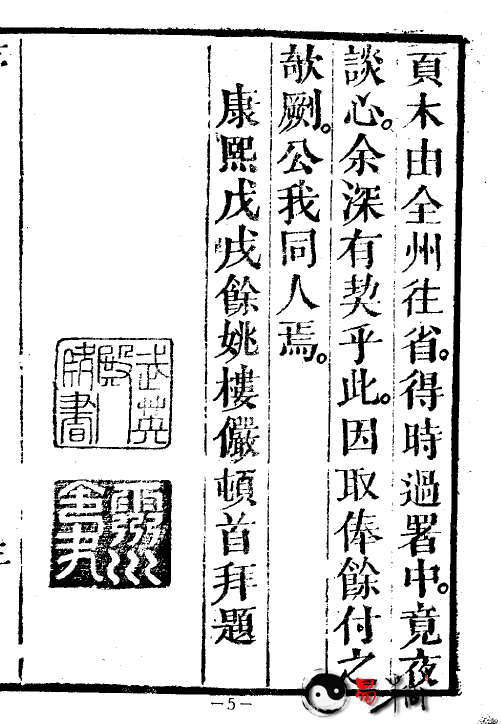 頁木由全州往省。得時過署中。竟夜
談心。余深有契乎此。因取俸餘付之
欹劂。公我同人焉。
康熙戊戌餘姚樓儼頓首拜題
武英殿脩書
—5—
易